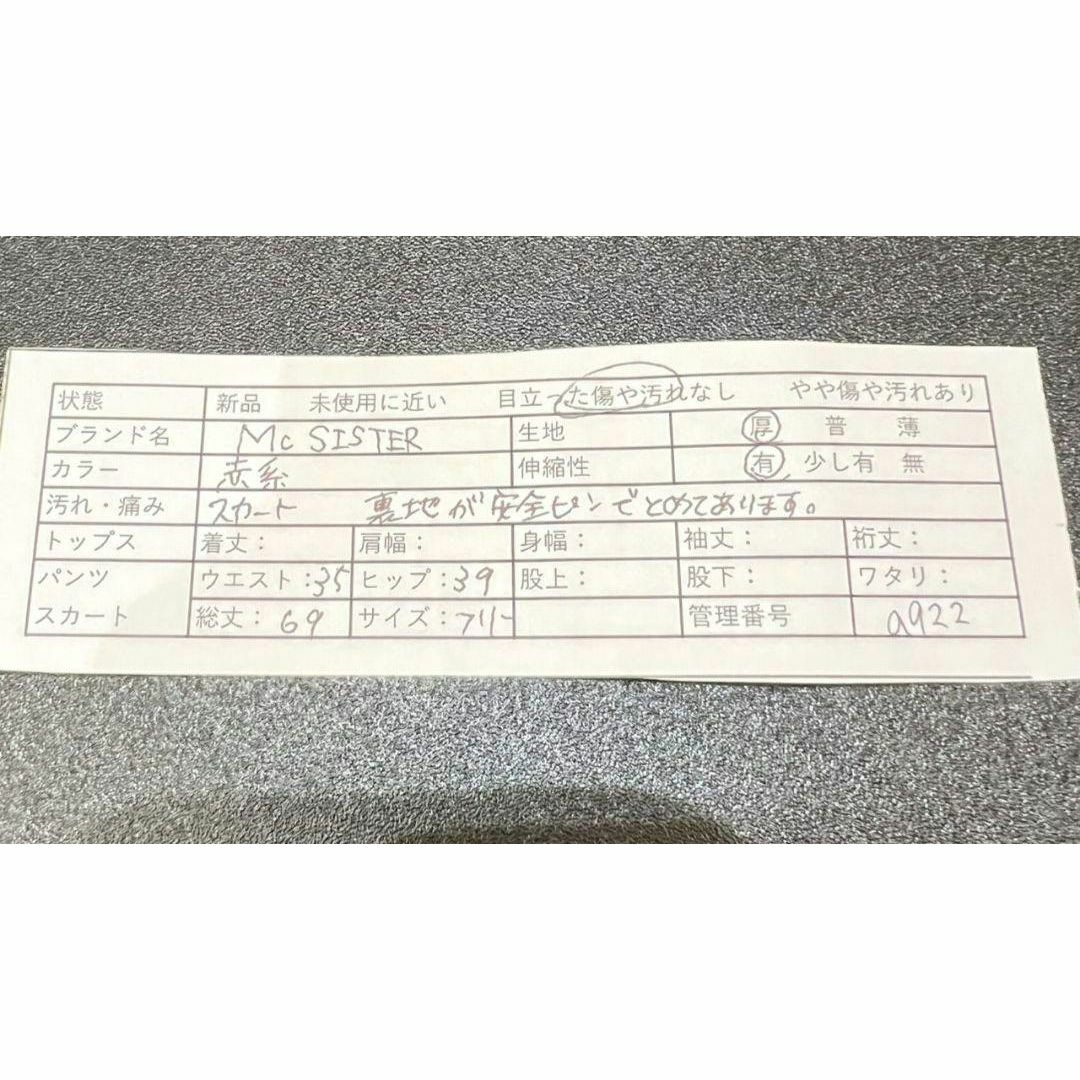 状態 新品 未使用に近い 目立った傷や汚れなし やや傷や汚れあり
ブランド名 Mc SISTER 生地 厚 普 薄
カラー 赤系 伸縮性 有 少し有 無
汚れ・痛み スカート 裏地が安全ピンでとめてあります。
トップス 着丈: 肩幅: 身幅: 袖丈: 裄丈:
パンツ ウエスト:35 ヒップ:39 股上: 股下: ワタリ:
スカート 総丈: 69 サイズ:フリー 管理番号 a922